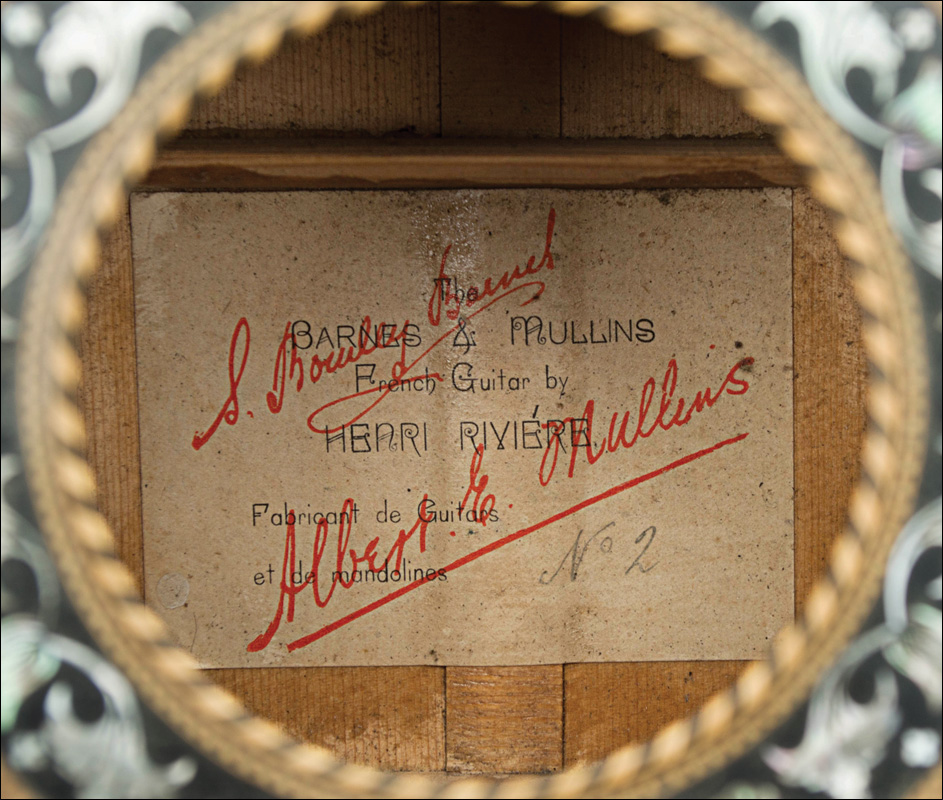 The
BARNES & MULLINS
French Guitar by
HENRI RIVIÉRE.
Fabricant de Guitars
et de mandolines
S. Bowley Barnes
Albert. E. Mullins
Nº 2